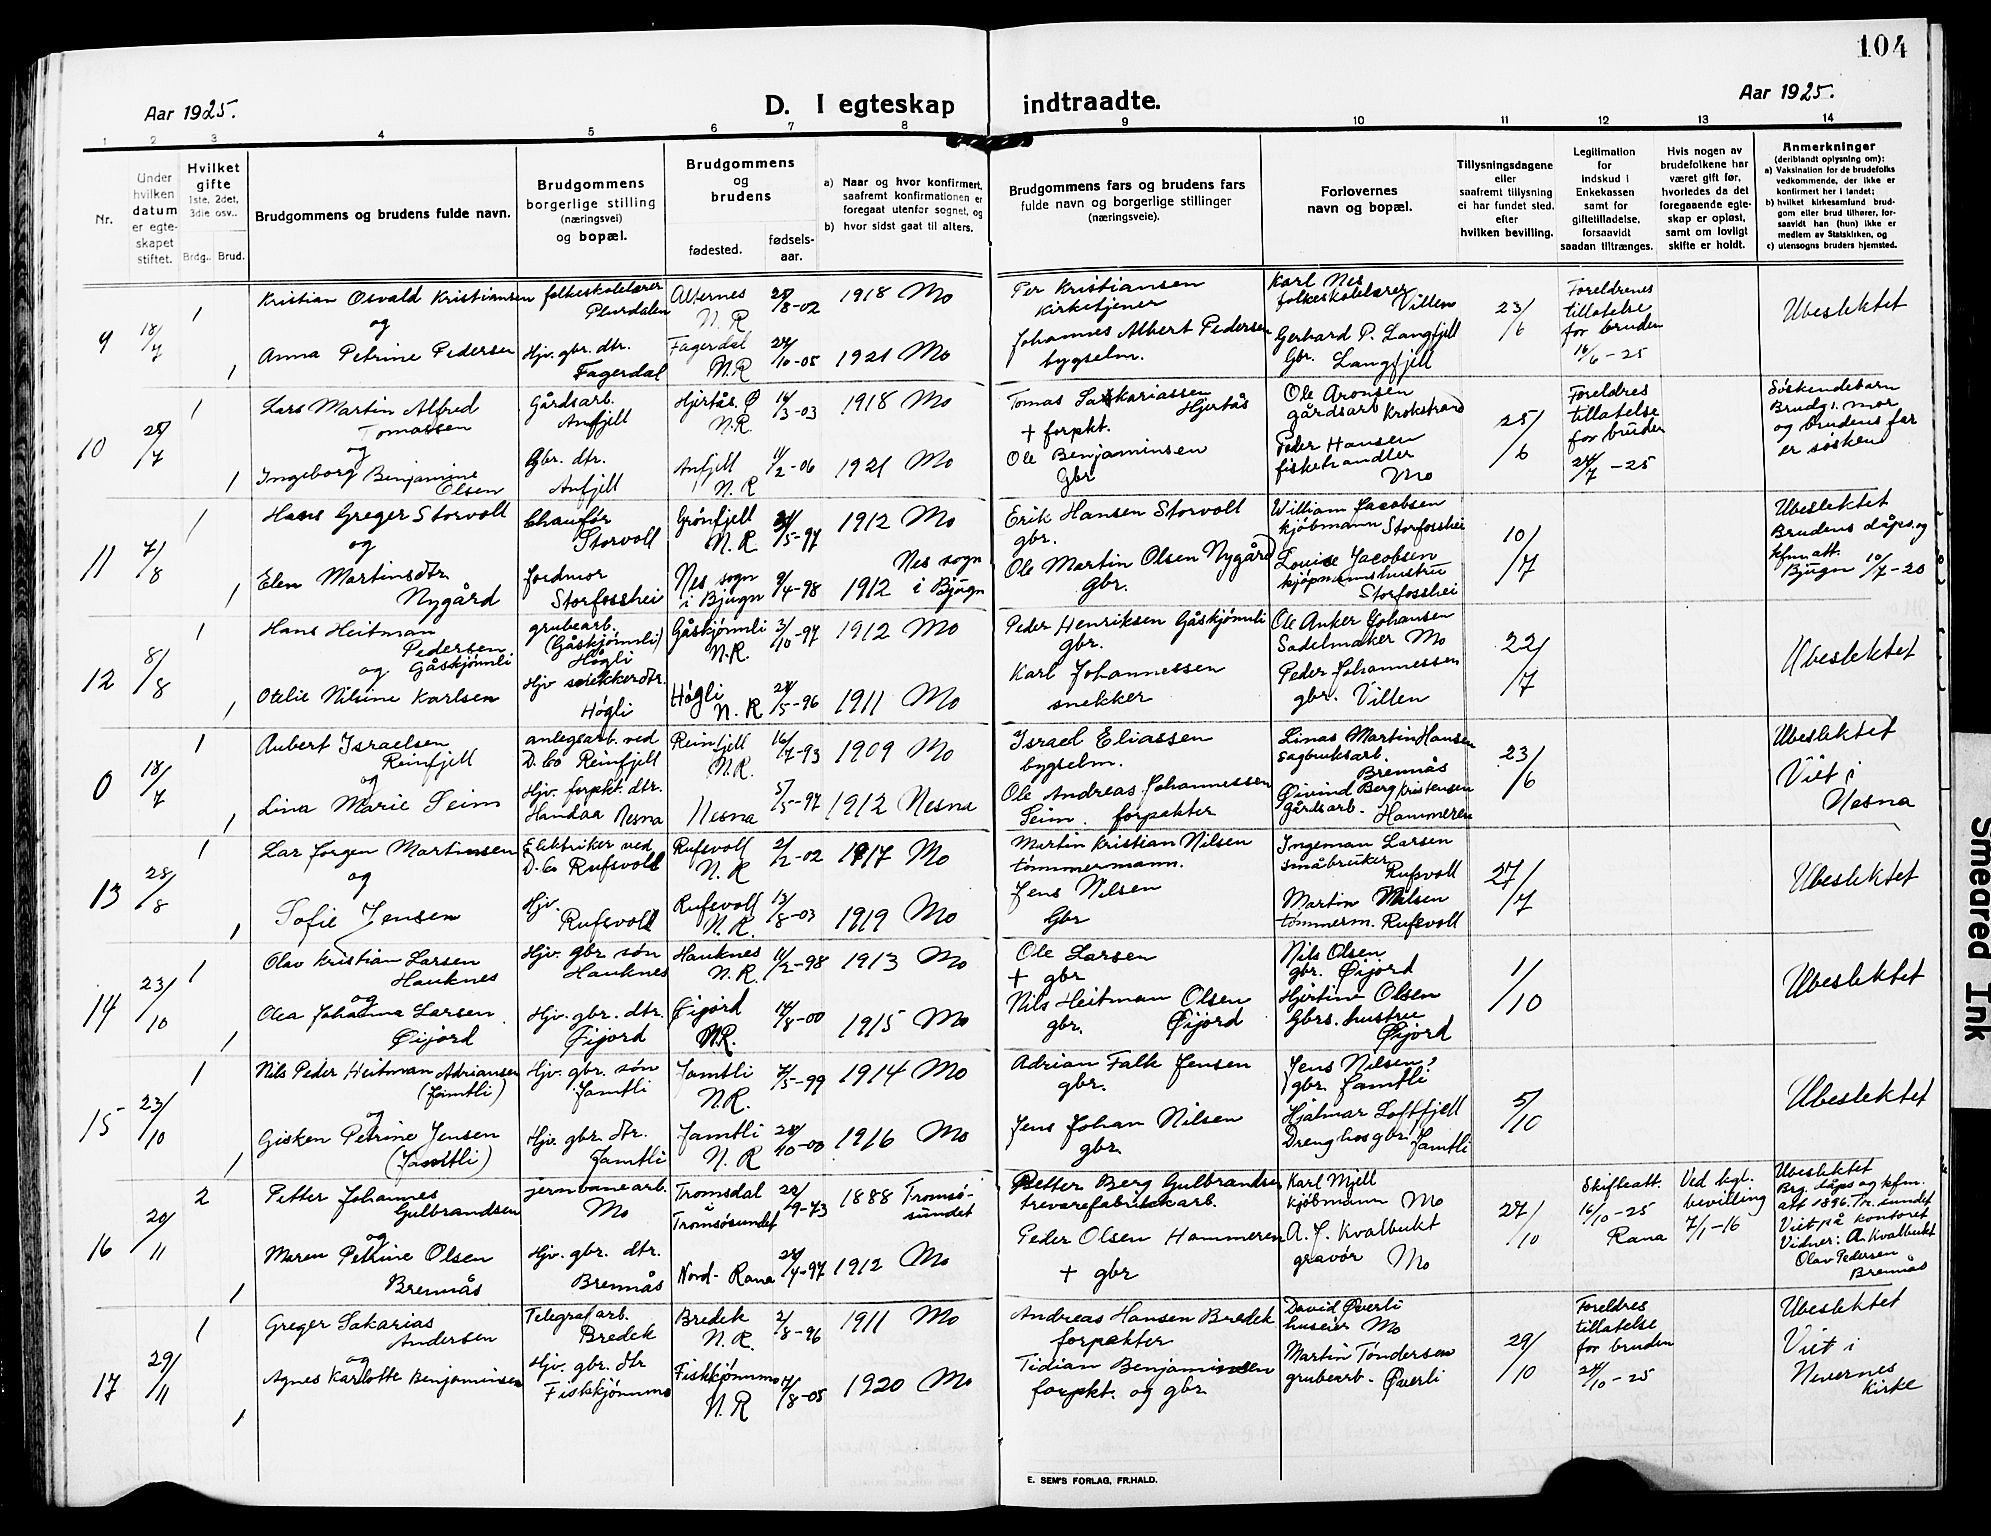 104
Aar 1925.
D. I egteskap indtraadte.
Aar 1925.
1 2 3 4 5 6 7 8 9 10 11 12 13 14
Nr.
Under hvilken datum er egteskapet stiftet.
Hvilket gifte 1ste, 2det, 3die osv..
Brdg.. Brud.
Brudgommens og brudens fulde navn.
Brudgommens borgerlige stilling (næringsvei) og bopæl.
Brudgommens og brudens
fødested.
fødsels-aar.
a) Naar og hvor konfirmert, saafremt konfirmationen er foregaat utenfor sognet, og
b) hvor sidst gaat til alters.
Brudgommens fars og brudens fars fulde navn og borgerlige stillinger (næringsveie).
Forlovernes navn og bopæl.
Tillysningsdagene eller saafremt tillysning ei har fundet sted. efter hvilken bevilling.
Legitimation for indskud i Enkekassen samt for giftetilladelse, forsaavidt saadan tiltrænges.
Hvis nogen av brudefolkene har været gift før, hvorledes da det foregaaende egteskap er opløst, samt om lovligt skifte er holdt.
Anmerkninger (deriblandt oplysning om):
a) Vaksination for de brudefolks vedkommende, der ikke er konfirmert her i landet;
b) hvilket kirkesamfund brudgom eller brud tilhører, forsaavidt han (hun) ikke er medlem av Statskirken, og
c) utensogns bruders hjemsted.
9 18/7 1 Kristian Osvald Kristiansen folkeskolelærer Plurdalen Alternes N.R 8-02 1918 Mo Per Kristiansen kirketjener Karl Nes folkeskolelærer Villen 23/6 Foreldrenes tillatelse for bruden 16/6-25 Ubeslektet
og
1 Anna Petrine Pedersen Hjv. gbr. dtr. Fagerdal Fagerdal N.R 10-05 1921 Mo Johannes Albert Pedersen bygselm. Gerhard P. Langfjell Gbr. Langfjell
10 1 Lars Martin Alfred Tomassen Gårdsarb. Anfjell Hjertås. Ø N.R. 3-03 1918 Mo Tomas Sakkariassen Hjertås + forpkt. Ole Aronsen gårdsarb Krokstrand 25/6 Foreldres tillatelse for bruden 7-25 Søskendebarn Brudg. mor og brudens far er søsken
og
1 Ingeborg Benjamine Olsen Gbr. dtr. Anfjell Anfjell N.R 11/2-06 1921 Mo Ole Benjaminsen Gbr Peder Hansen fiskehandler Mo
11 7/8 1 Hans Greger Storvoll Chaufør Storvoll Grønfjell N.R 5-97 1912 Mo Erik Hansen Storvoll gbr. William Jacobsen kjøbmann Storfosshei 10/7 Ubeslektet Brudens dåps og kfm att. Bjugn 10/7-20
og
1 Elen Martinsdtr. Nygård Jordmor Storfosshei Nes sogn i Bjugn 9/4-98 1912 Nes sogn i Bjugn Ole Martin Olsen Nygård Gbr. Louise Jacobsen kjøpmannshustru Storfosshei
12 8/8 1 Hans Heitman Pedersen Gåskjønli grubearb. (Gåskjønli) Høgli Gåskjønli N.R. 3/10-97 1912 Mo Peder Henriksen Gåskjønli gbr. Ole Anker Johansen Sadelmaker Mo 22/7 Ubeslektet
og
1 Otelie Nilsine Karlsen Hjv snekkerdtr. Høgli Høgli N.R 5-96 1911 Mo Karl Johannessen snekker Peder Johannessen gbr. Villen
0 18/7 1 Aubert Israelsen Reinfjell anlegsarb. ved D. Co Reinfjell Reinfjell N.R. 16/7-93 1909 Mo Israel Eliassen bygselm. Linas Martin Hansen sagbruksarb. Brennås 23/6 Ubeslektet Viet i Nesna
og
1 Lina Marie Seim Hjv. forpkt. dtr. Handaa Nesna Nesna 5/5-97 1912 Nesna Ole Andreas Johannessen Seim. forpakter Øivind Berg Kristensen gårdsarb. Hammeren
13 28/8 1 Lar Jørgen Martinsen Elektriker ved D. Co Rufsvoll Rufsvoll N.R 2/2-02 1917 Mo Martin Kristian Nilsen tømmermann. Ingeman Larsen småbruker Rufsvoll 27/7 Ubeslektet
og
1 Sofie Jensen Hjv. Rufsvoll Rufsvoll N.R. 13/8-03 1919 Mo Jens Nilsen Gbr Martin Nilsen tømmerm. Rufsvoll
14 23/10 1 Olav Kristian Larsen Hauknes Hjv. gbr. søn Hauknes Hauknes N.R. 11/2-98 1913 Mo Ole Larsen + gbr Nils Olsen gbr. Øijord 1/10 Ubeslektet
og
1 Olea Johanna Larsen Øijord Hjv. gbr. dtr. Øijord Øijord N.R. 8-00 1915 Mo Nils Heitman Olsen gbr. Øijord Hjertine Olsen Gbrs. hustru Øijord
15 23/10 1 Nils Peder Heitman Adriansen (Jamtli) Hjv. gbr. søn Jamtli Jamtli N.R. 5-99 1914 Mo Adrian Falk Jensen gbr. Jens Nilsen? gbr. Jamtli 5/10 Ubeslektet
og
1 Gisken Petrine Jensen (Jamtli) Hjv. gbr. dtr. Jamtli Jamtli N.R 10-00 1916 Mo Jens Johan Nilsen gbr. Hjalmar Loftfjell Dreng hos gbr. Jamtli
16 20/11 2 Petter Johannes Gulbrandsen jernbanearb. Mo Tromsdal i Tromsøsundet 9-73 1888 Tromsøsundet Petter Berg Gulbrandsen trevarefabrikkarb. Karl Mjell kjøbmann Mo 27/10 Skifteatt. 16/10-25 Rana Ved kgl. bevilling 7/1-16 Ubeslektet Brg. dåps og kfm. att 1896. Tr.sundet Viet på kontoret Vidner: A. Kvalbukt Olav Pedersen Brennås
og
1 Maren Petrine Olsen Brennås Hjv. gbr. dtr. Brennås Nord-Rana 4-97 1912 Mo Peder Olsen Hammeren + gbr A. J. Kvalbukt gravør Mo
17 29/11 1 Greger Sakarias Andersen Telegrafarb. Bredek Bredek N.R. 2/8-96 1911 Mo Andreas Hansen Bredek forpakter David Øverli huseier Mo 29/10 Foreldres tillatelse for bruden 10-25 Ubeslektet Viet i Nevernes Kirke
og
1 Agnes Karlotte Benjaminsen Hjv. gbr. dtr Fiskkjønmo Fiskkjønmo N.R 8-05 1920 Mo Tidian Benjaminsen forpkt. og gbr Martin Tøndersen grubearb. Øverli
E. SEM'S FORLAG, FR.HALD.
Smeared Ink